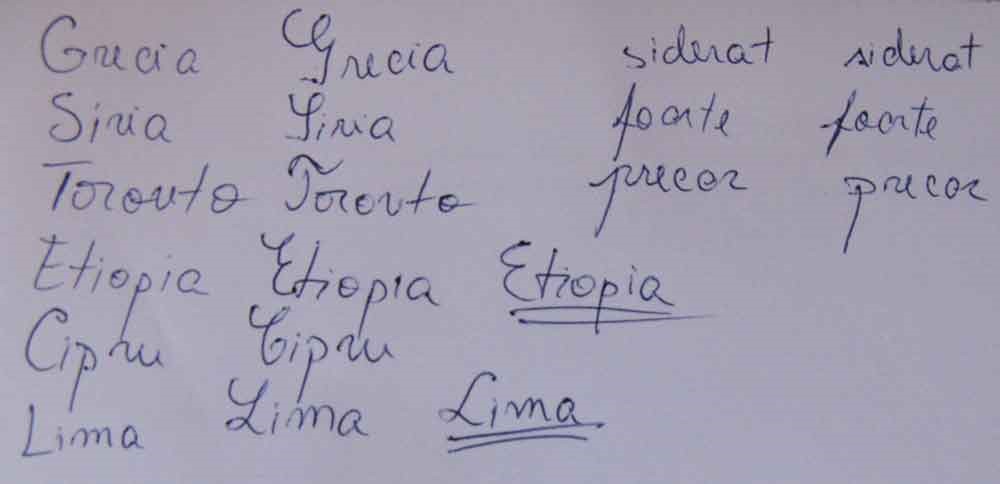 Grecia Grecia siderat siderat
Siria Siria foarte foarte
Toronto Toronto precor precor
Etiopia Etiopia Etiopia
Cipru Cipru
Lima Lima Lima